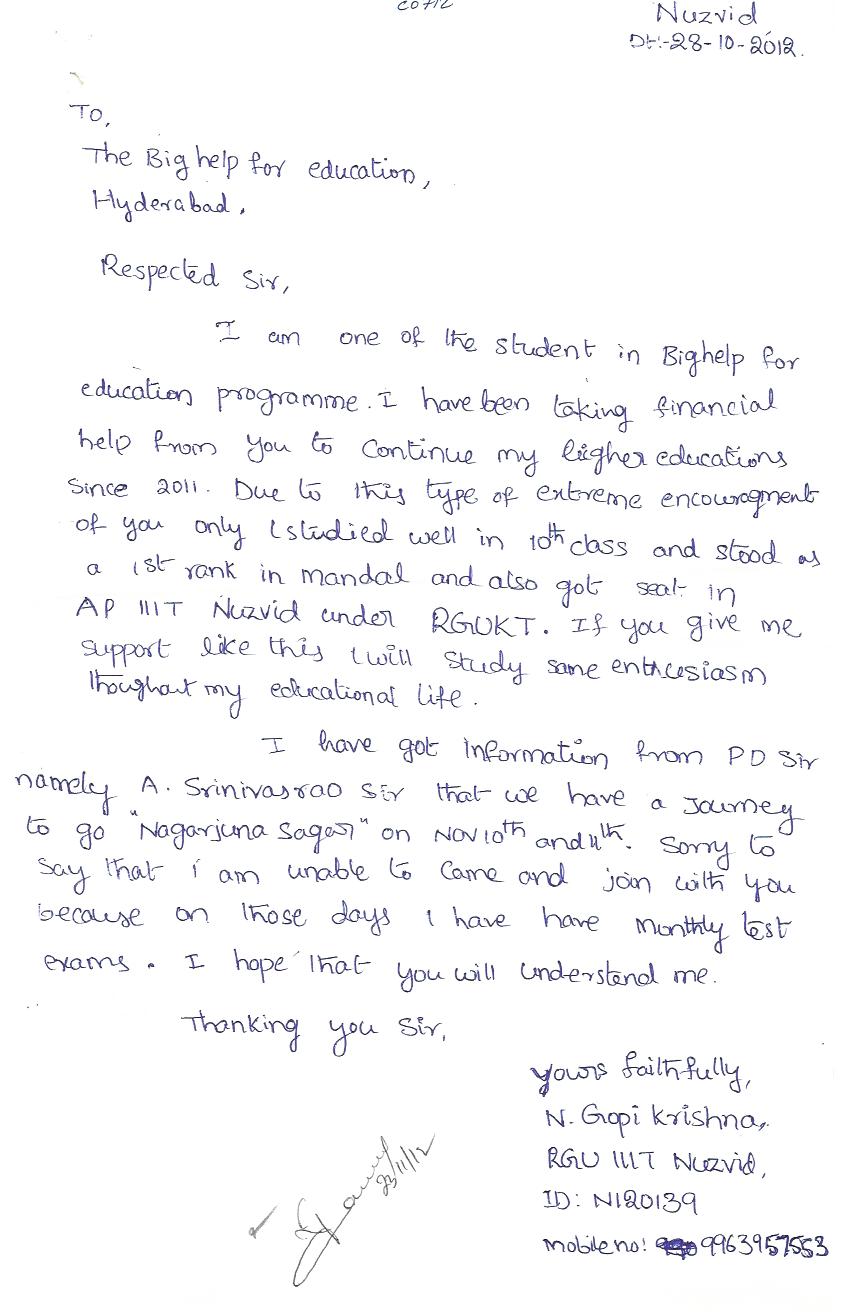 Nuzvid
Dt:-28-10-2012.
To,
The Big help for education,
Hyderabad,
Respected Sir,
I am one of the student in Bighelp for
education programme. I have been taking financial
help from you to continue my higher educations
since 2011. Due to this type of extreme encouragment
of you only I studied well in 10th class and stood as
a 1st rank in mandal and also got seat in
AP IIIT Nuzvid under RGUKT. If you give me
support like this I will study same enthusiasm
thoughout my educational life.
I have got information from PD Sir
namely A. Srinivasrao Sir that we have a Journey
to go "Nagarjuna Sagar" on NOV 10th and 11th. Sorry to
say that i am unable to came and join with you
because on those days I have have monthly test
exams. I hope that you will understand me.
Thanking you Sir,
yours faithfully,
N. Gopi Krishna,
RGU IIIT Nuzvid,
ID: N120139
mobile no: 9963957553
23/11/12